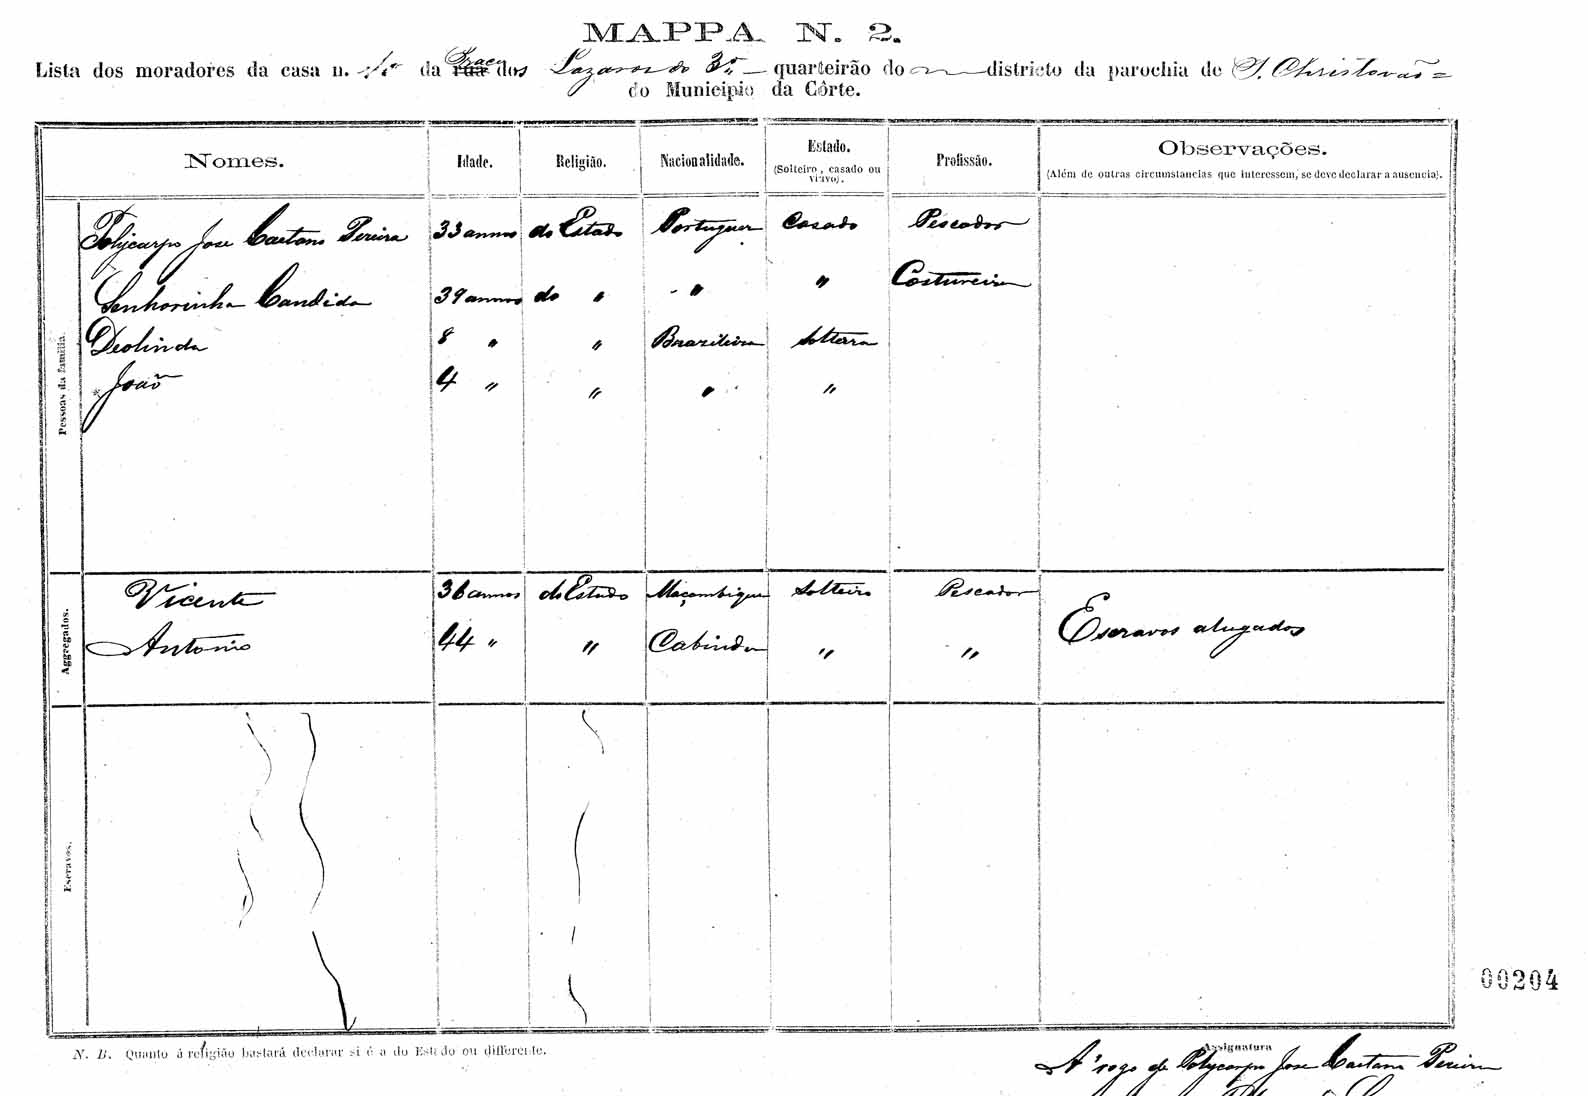 MAPPA N. 2.
Lista dos moradores da casa n. da rua Praça dos Lazaros do 3º quarteirão do districto da parochia de S. Christovão
do Municipio da Côrte.
Nomes. Idade. Religião. Nacionalidade. Estado. (Solteiro, casado ou viuvo). Profissão. Observações. (Além de outras circumstancias que interessem, se deve declarar a ausencia).
Pessoas da familia.
Polycarpo Jose Caetano Pereira 33 annos do Estado Portuguez Casado Pescador
Senhorinha Candida 39 annos do " " " Costureira
Deolinda 8 " " Brazileira Solteira
João 4 " " " "
Aggregados.
Vicente 36 annos do Estado Maçambique Solteiro Pescador
Antonio 44 " " Cabinda " "
Escravos alugados
Escravos.
00204
N. B. Quanto á religião bastará declarar si é a do Estado ou differente.
Assignatura
A rogo de Polycarpo Jose Caetano Pereira